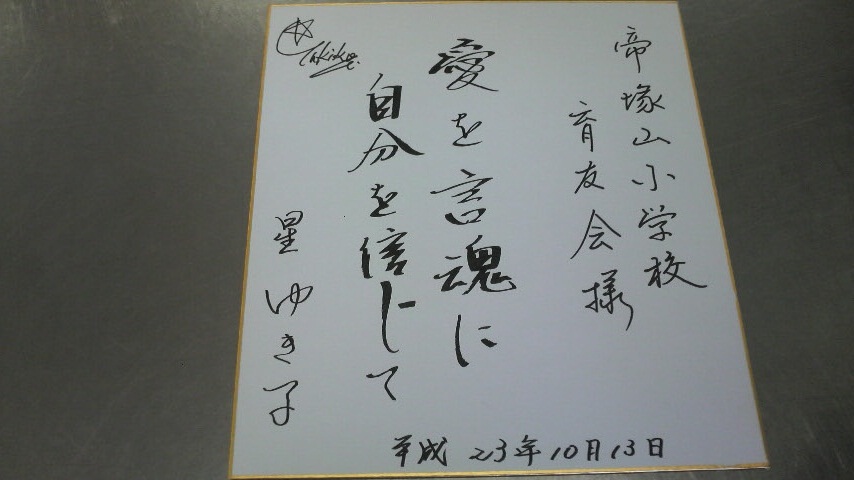 帝塚山小学校
育友会様
愛を言魂に
自分を信じて
星ゆき子
平成23年10月13日